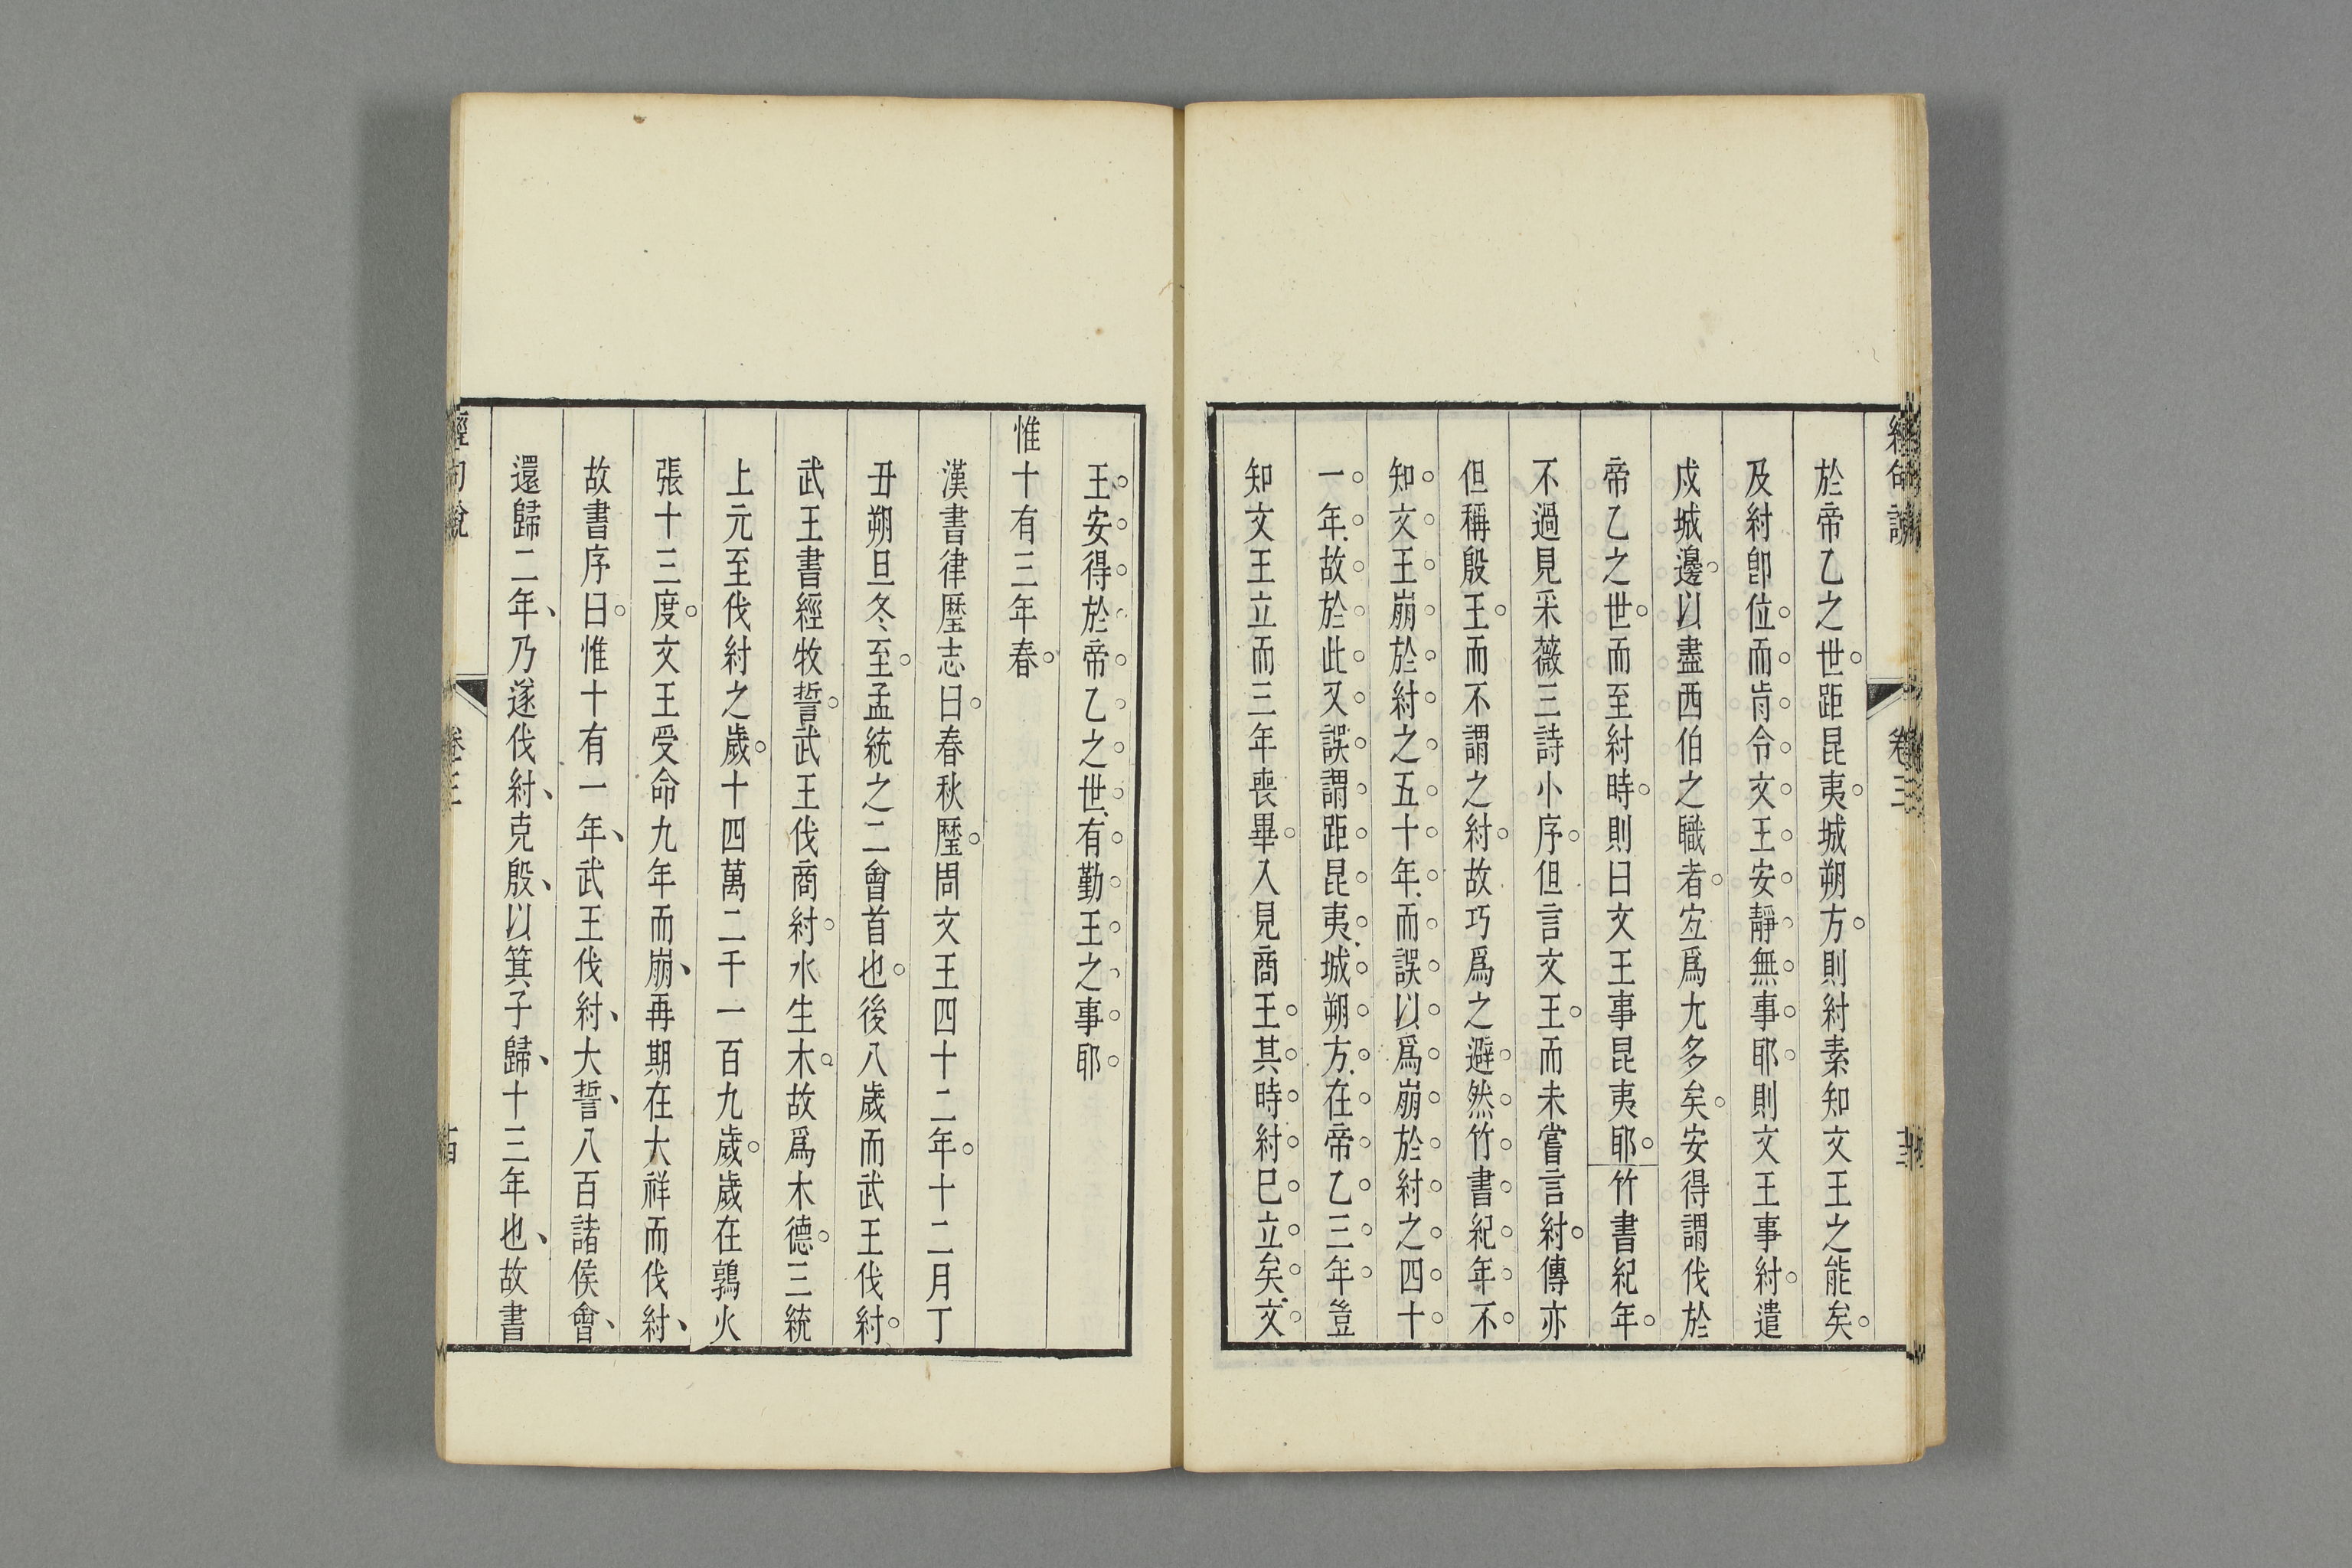 經句說
卷三
於帝乙之世距昆夷城朔方則紂素知文王之能矣
及紂卽位而肯令文王安靜無事耶則文王事紂遣
戍城邊以盡西伯之職者宐爲尢多矣安得謂伐於
帝乙之世而至紂時則曰文王事昆夷耶竹書紀年
不過見采薇三詩小序但言文王而未嘗言紂傳亦
但稱殷王而不謂之紂故巧爲之避然竹書紀年不
知文王崩於紂之五十年而誤以爲崩於紂之四十
一年故於此又誤謂距昆夷城朔方在帝乙三年豈
知文王立而三年喪畢入見商王其時紂巳立矣文
王安得於帝乙之世有勤王之事耶
惟十有三年春
漢書律歷志曰春秋歷周文王四十二年十二月丁
丑朔旦冬至孟統之二會首也後八歲而武王伐紂
武王書經牧誓武王伐商紂水生木故爲木德三統
上元至伐紂之歲十四萬二千一百九歲歲在鶉火
張十三度文王受命九年而崩再期在大祥而伐紂
故書序曰惟十有一年武王伐紂大誓八百諸侯會
還歸二年乃遂伐紂克殷以箕子歸十三年也故書
經句說
卷三